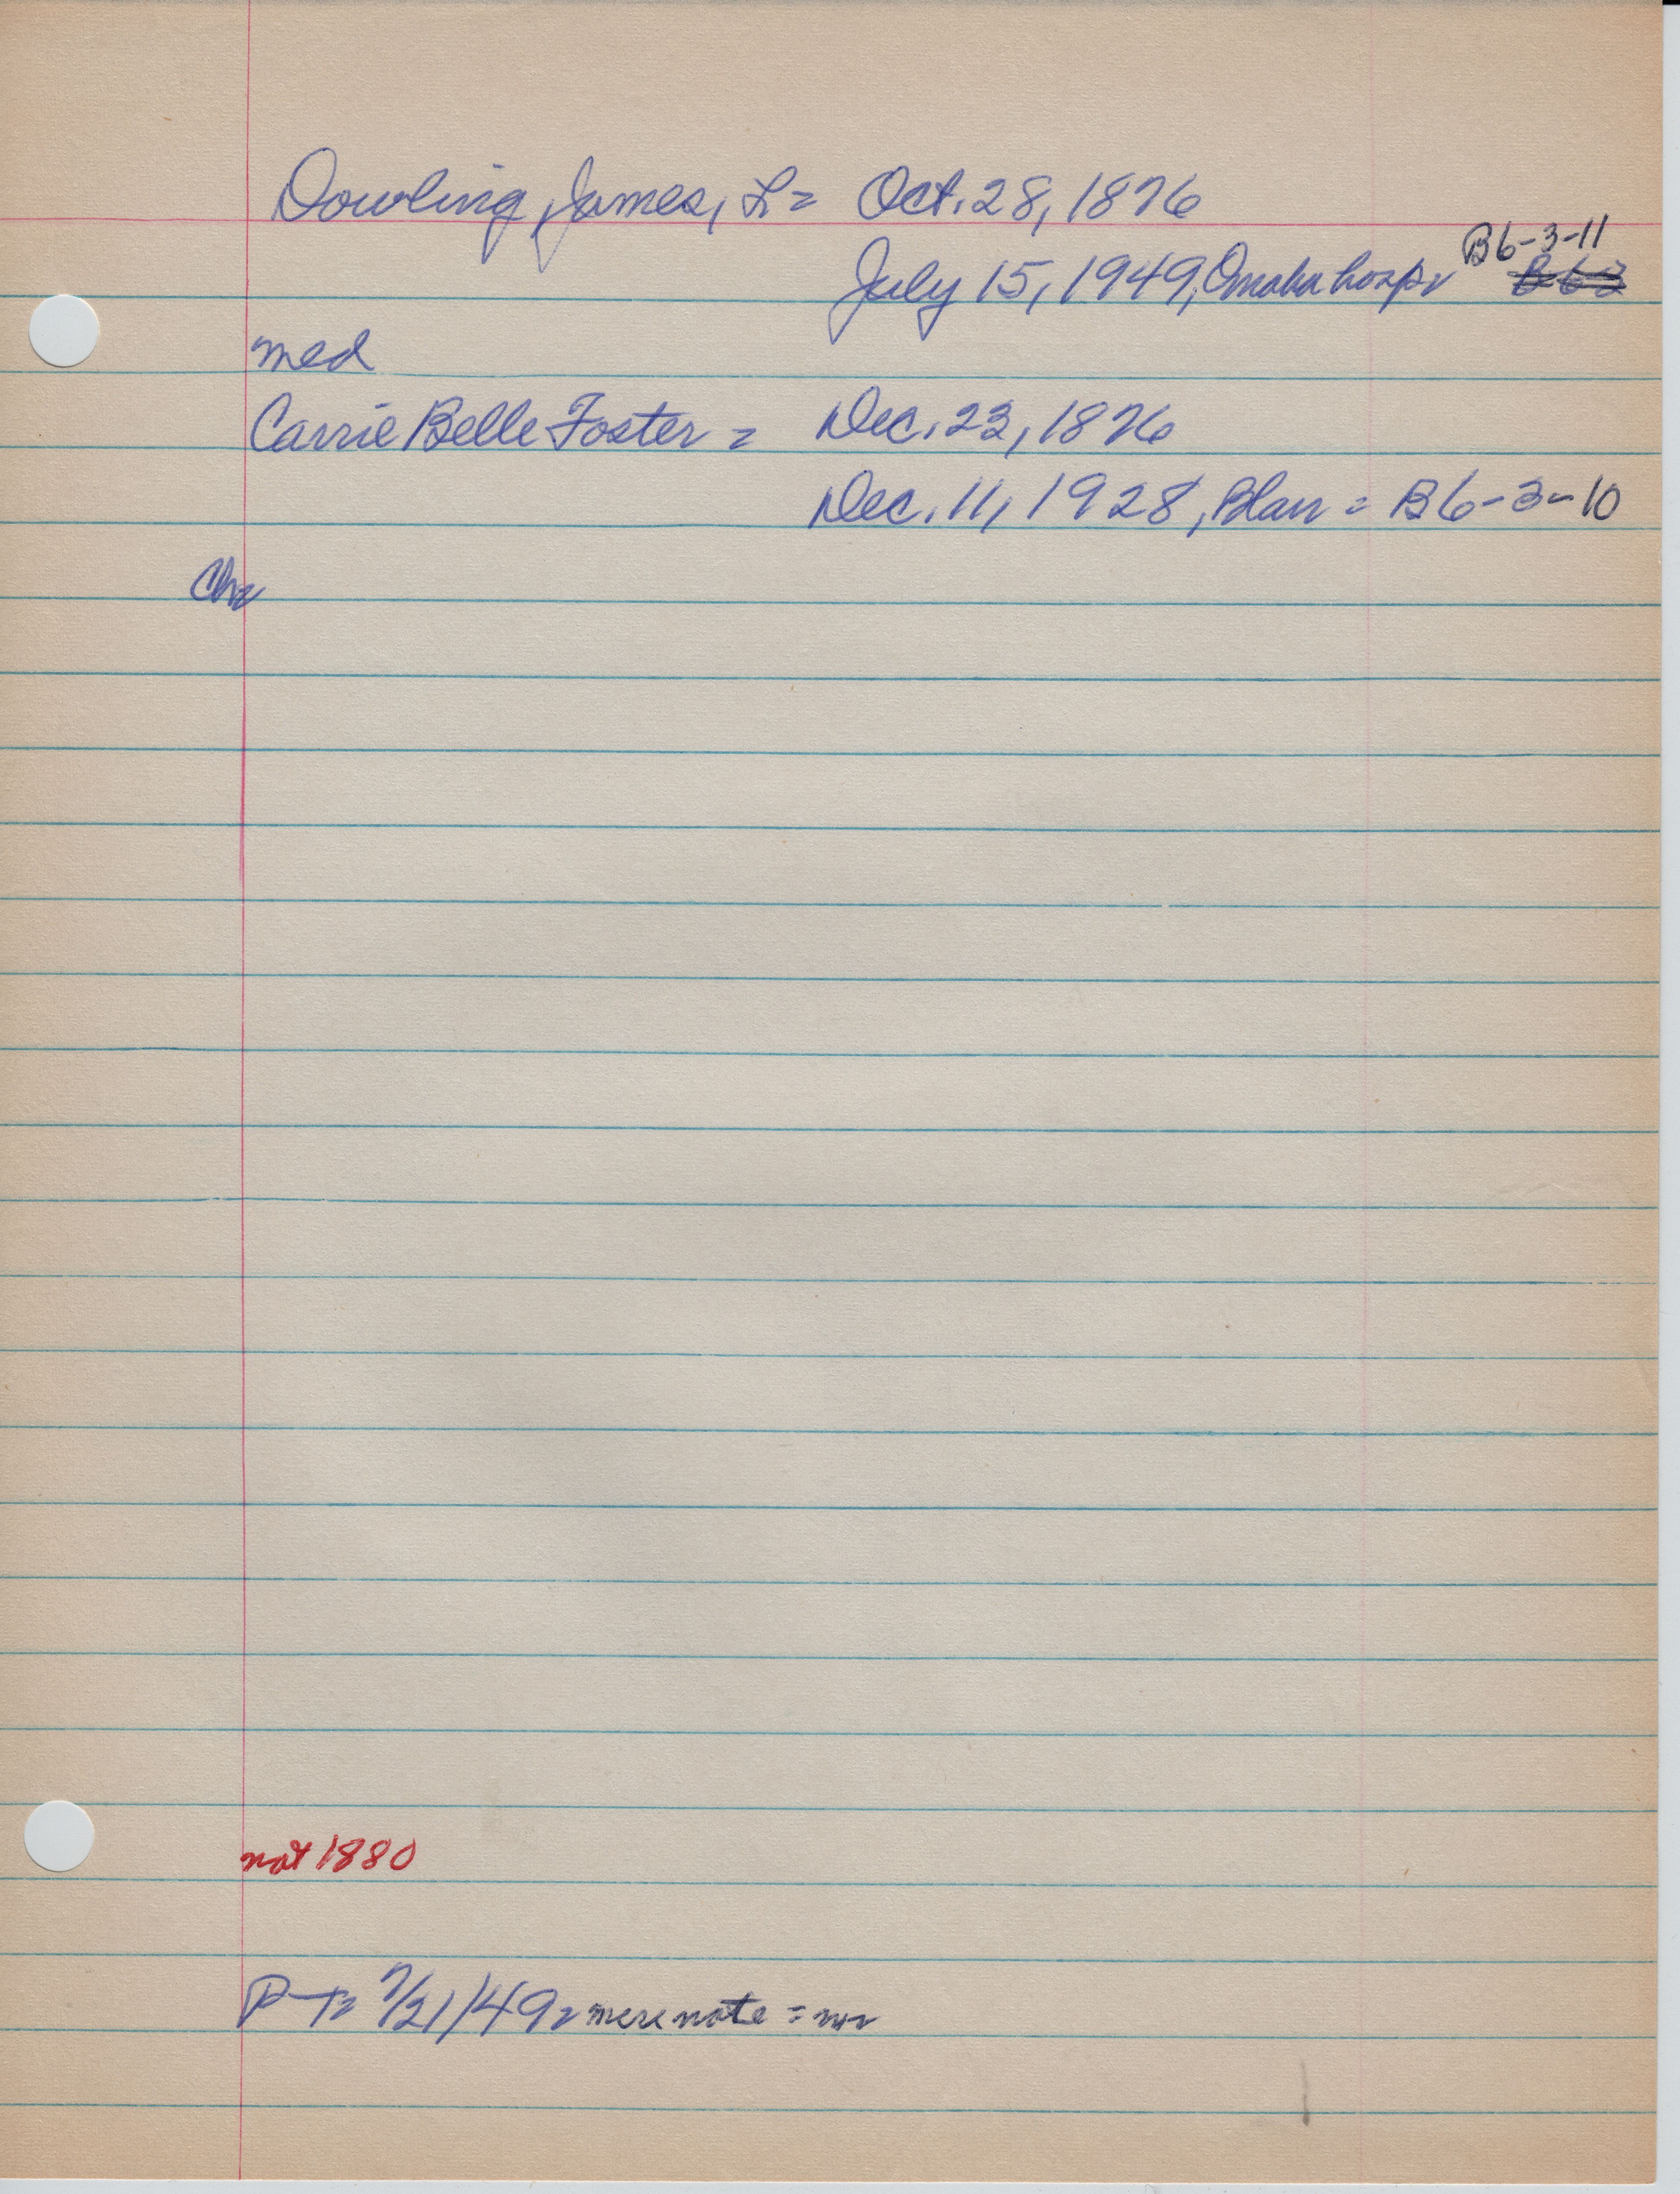 Dowling, James, L = Oct. 28, 1876
B6-3-11
July 15, 1949, Omaha hosp = B 63
med
Carrie Belle Foster = Dec. 23, 1876
Dec. 11, 1928, Blair = B6-3-10
Ch =
not 1880
P-T = 7/21/49 = mere note =